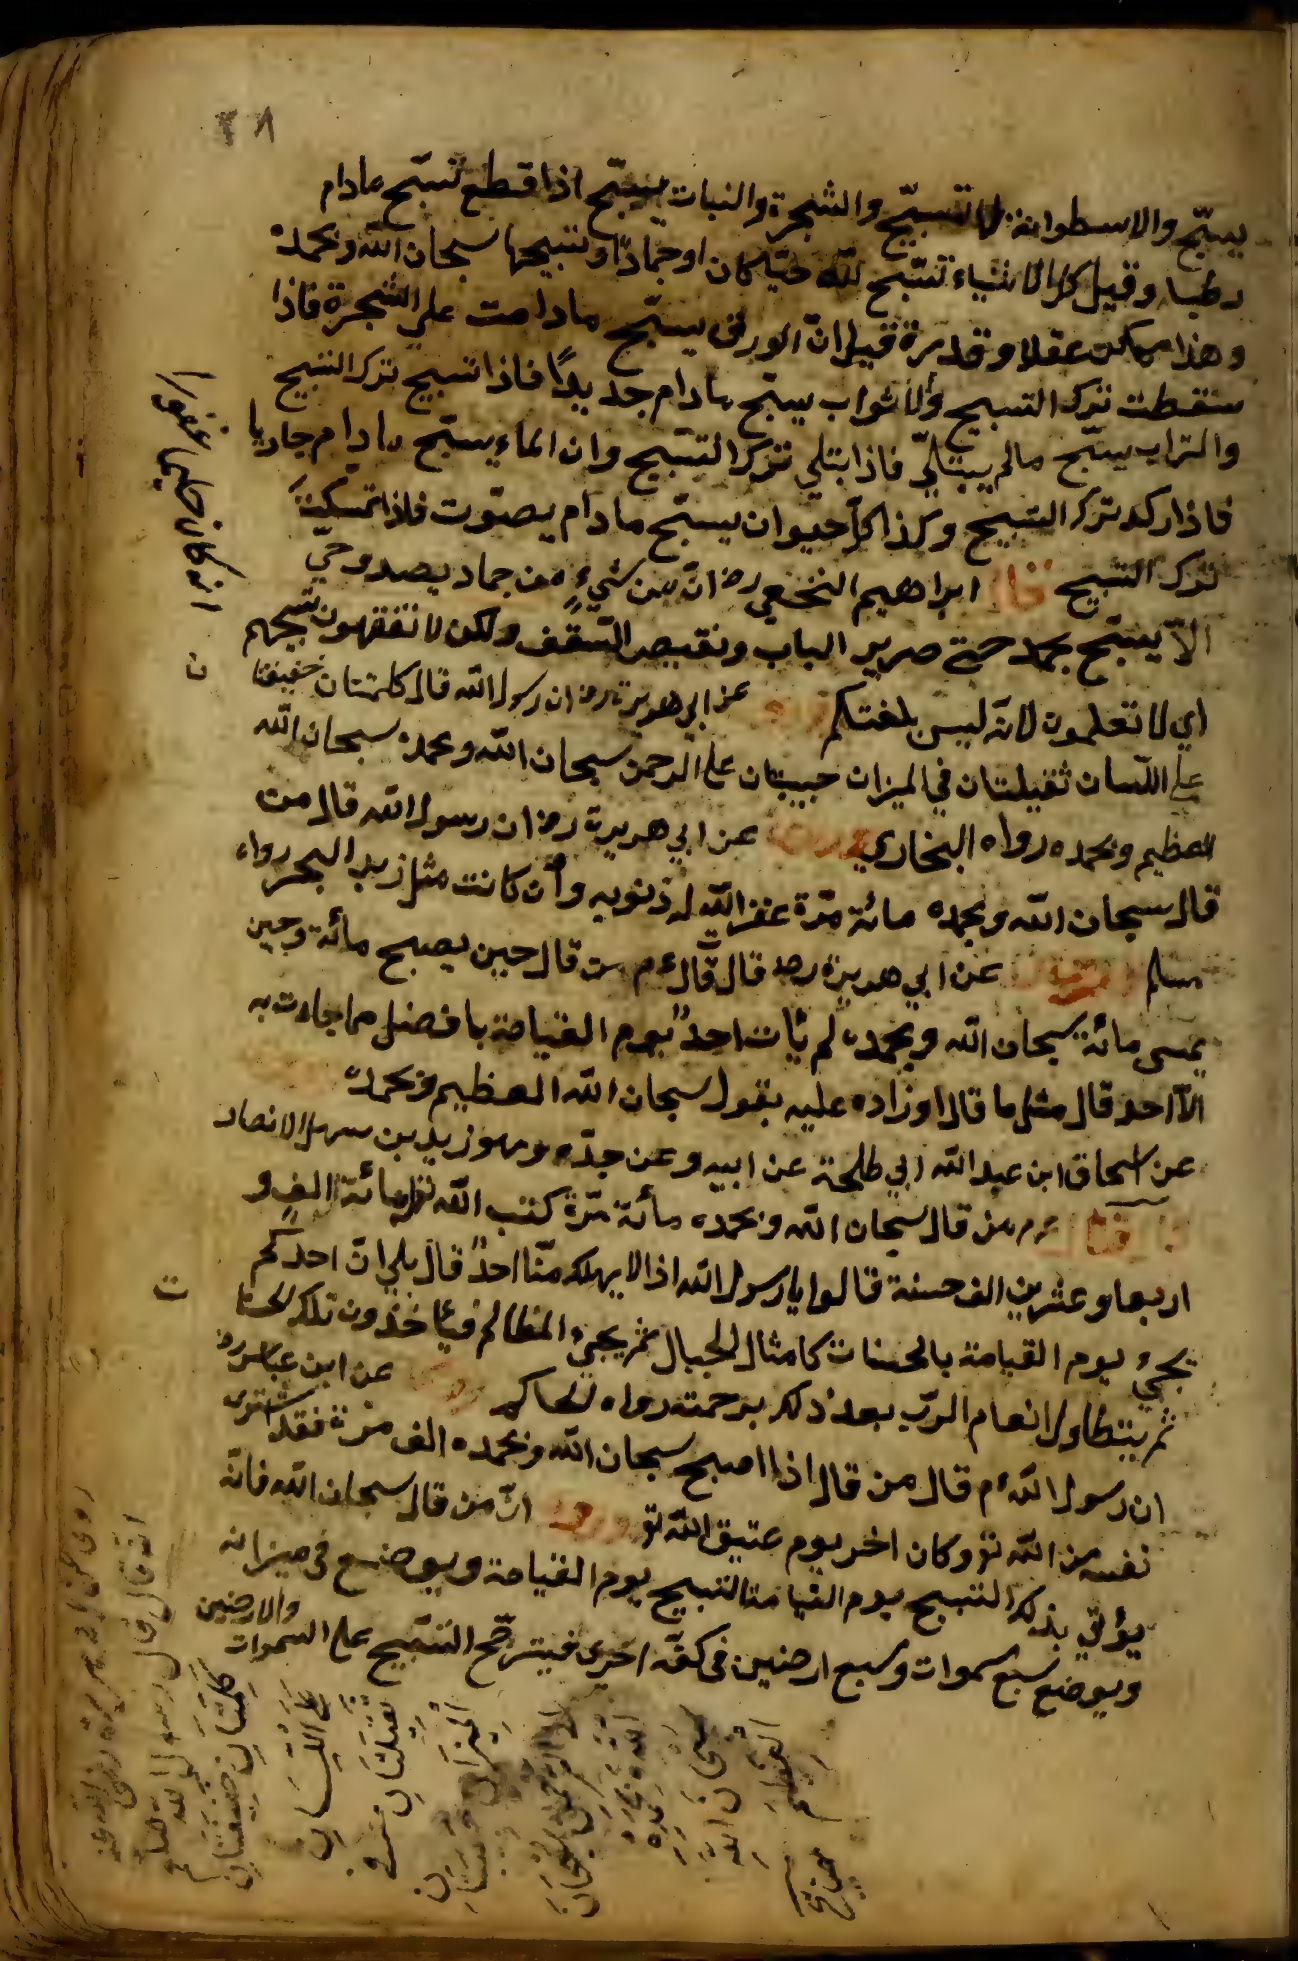 ٣٨
يسبّح والاسطوانة لها تسبيح والشجرة والنبات يسبّح اذا قطع تسبّح مادام
رطبا وقيل كل الاشياء تسبّح لله حيّا كان او جمادًا وتسبيحها سبحان الله وبحمده
وهذا ممكن عقلا وقدرة قيل انّ الورق يسبّح مادامت علي الشجرة فاذا
سقطت ترك التسبيح والاثواب يسبّح مادام جديدًا فاذا تسبح ترك التسبيح
والتراب يسبّح مالم يبتلّ فاذا ابتلي ترك التسبيح وان الماء يسبّح مادام جاريا
فاذا ركد ترك التسبيح وكذا كل حيوان يسبّح مادام يصوّت فاذا تمسكن
ترك التسبيح قال ابراهيم النخعي رض ان من شيءٍ من جماد وحيّ
الاّ يسبّح بحمده حتي صرير الباب ونقيض السّقف ولكن لا تفقهون تسبيحهم
اي لا تعلمون لانّه ليس بلغتكم عن ابي هريرة رض ان رسول الله قال كلمتان خفيفتا
ن
علي اللّسان ثقيلتان في الميزان حبيبتان علي الرحمن سبحان الله وبحمده سبحان الله
العظيم وبحمده رواه البخاري عن ابي هريرة رض ان رسول الله قال من
قال سبحان الله وبحمده مائة مرّة غفر الله له ذنوبه وان كانت مثل زبد البحر رواه
مسلم عن ابي هريرة رض قال قال ءم من قال حين يصبح مائة وحين
يمسي مائة سبحان الله وبحمده لم يأت احدٌ يوم القيامة بافضل مما جاءت به
الاّ احد قال مثل ما قال او زاده عليه بقول سبحان الله العظيم وبحمده
عن اسحاق ابن عبد الله ابي طلحة عن ابيه وعن جدّه وهو زيد بن سهل الانصار
من قال سبحان الله وبحمده مائة مرّة كتب الله له مائة الف و
اربعا وعشرين الف حسنة قالوا يا رسول الله اذا لا يهلك منّا احدٌ قال بلي انّ احدكم
يجيءُ يوم القيامة بالحسنات كامثال الجبال ثم يجيءُ المظالم فيأخذون تلك الحسنا
ت
ثم يتطاول انعام الربّ بعد ذلك برحمته رواه الحاكم عن ابن عباس رض
ان رسول الله ءم قال من قال اذا اصبح سبحان الله وبحمده الف مرّة فقد اشترى
نفسه من الله تع وكان اخر يوم عتيق الله تع انّ من قال سبحان الله فانّه
يؤتي بذلك التسبيح يوم القيامة التسبيح يوم القيامة ويوضع في ميزانه
ويوضع سبع سموات وسبع ارضين في كفّة اخرى فيترجّح التسبّيح علي السموات والارضين
روى عن ابي هريرة رضى الله عنه
انه قال قال رسول الله صلعم
كلمتان خفيفتان
على اللسان
ثقيلتان في
الميزان
حبيبتان
الى الرحمن سبحان
الله وبحمده
سبحان الله
العظيم
صح